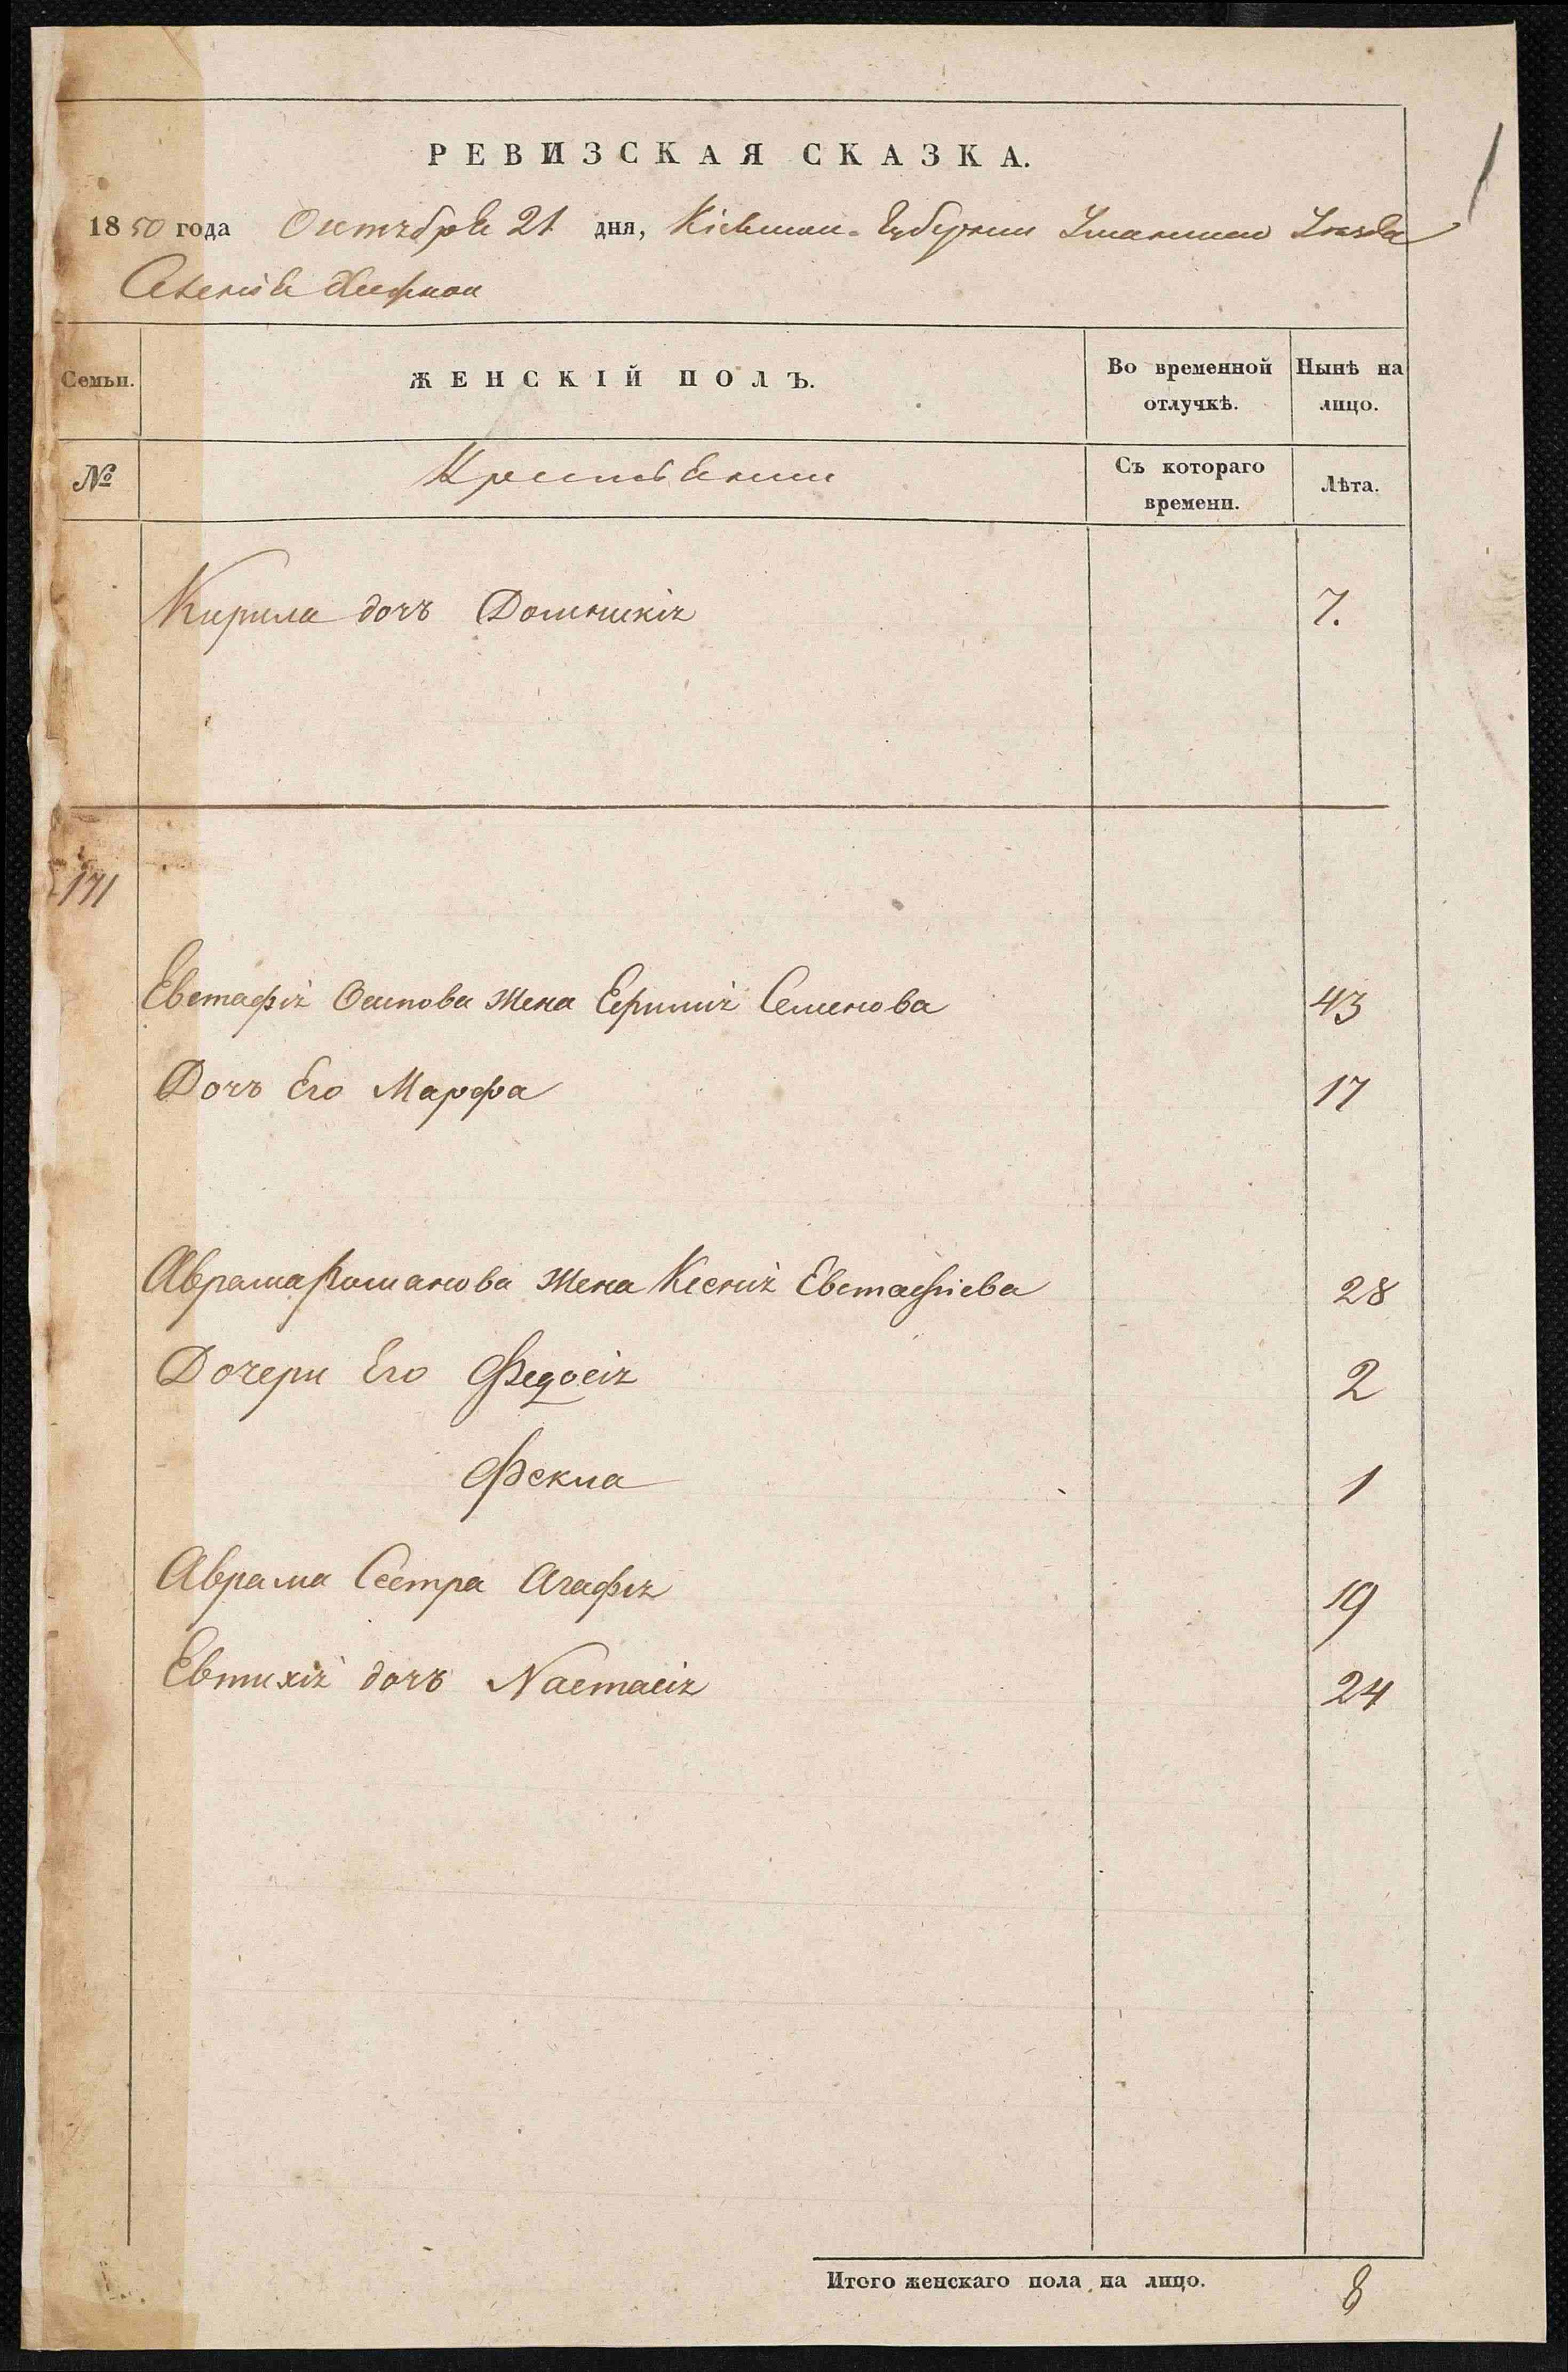 РЕВИЗСКАЯ СКАЗКА.
1850 года Октября 21 дня, Кіевской Губерніи Уманскаго Уезда
Семьи. ЖЕНСКІЙ ПОЛЪ. Во временной отлучкѣ. Нынѣ на лицо.
№ Крестьяне Съ котораго времени. Лѣта.
Кирила дочь Домникія 7.
171
Евстафія Осипова Жена Ефимія Семенова 43
Дочь Его Марфа 17
Аврама Романова Жена Ксенія Евстафіева 28
Дочери Его Федосія 2
Фекла 1
Аврама Сестра Агафія 19
Евтихія дочь Настасія 24
Итого женскаго пола на лицо. 8